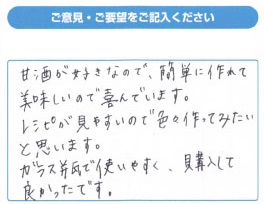 ご意見・ご要望をご記入ください
甘酒が好きなので、簡単に作れて
美味しいので喜んでいます。
レシピが見やすいので色々作ってみたい
と思います。
ガラス井氏で使いやすく、購入して
良かったです。